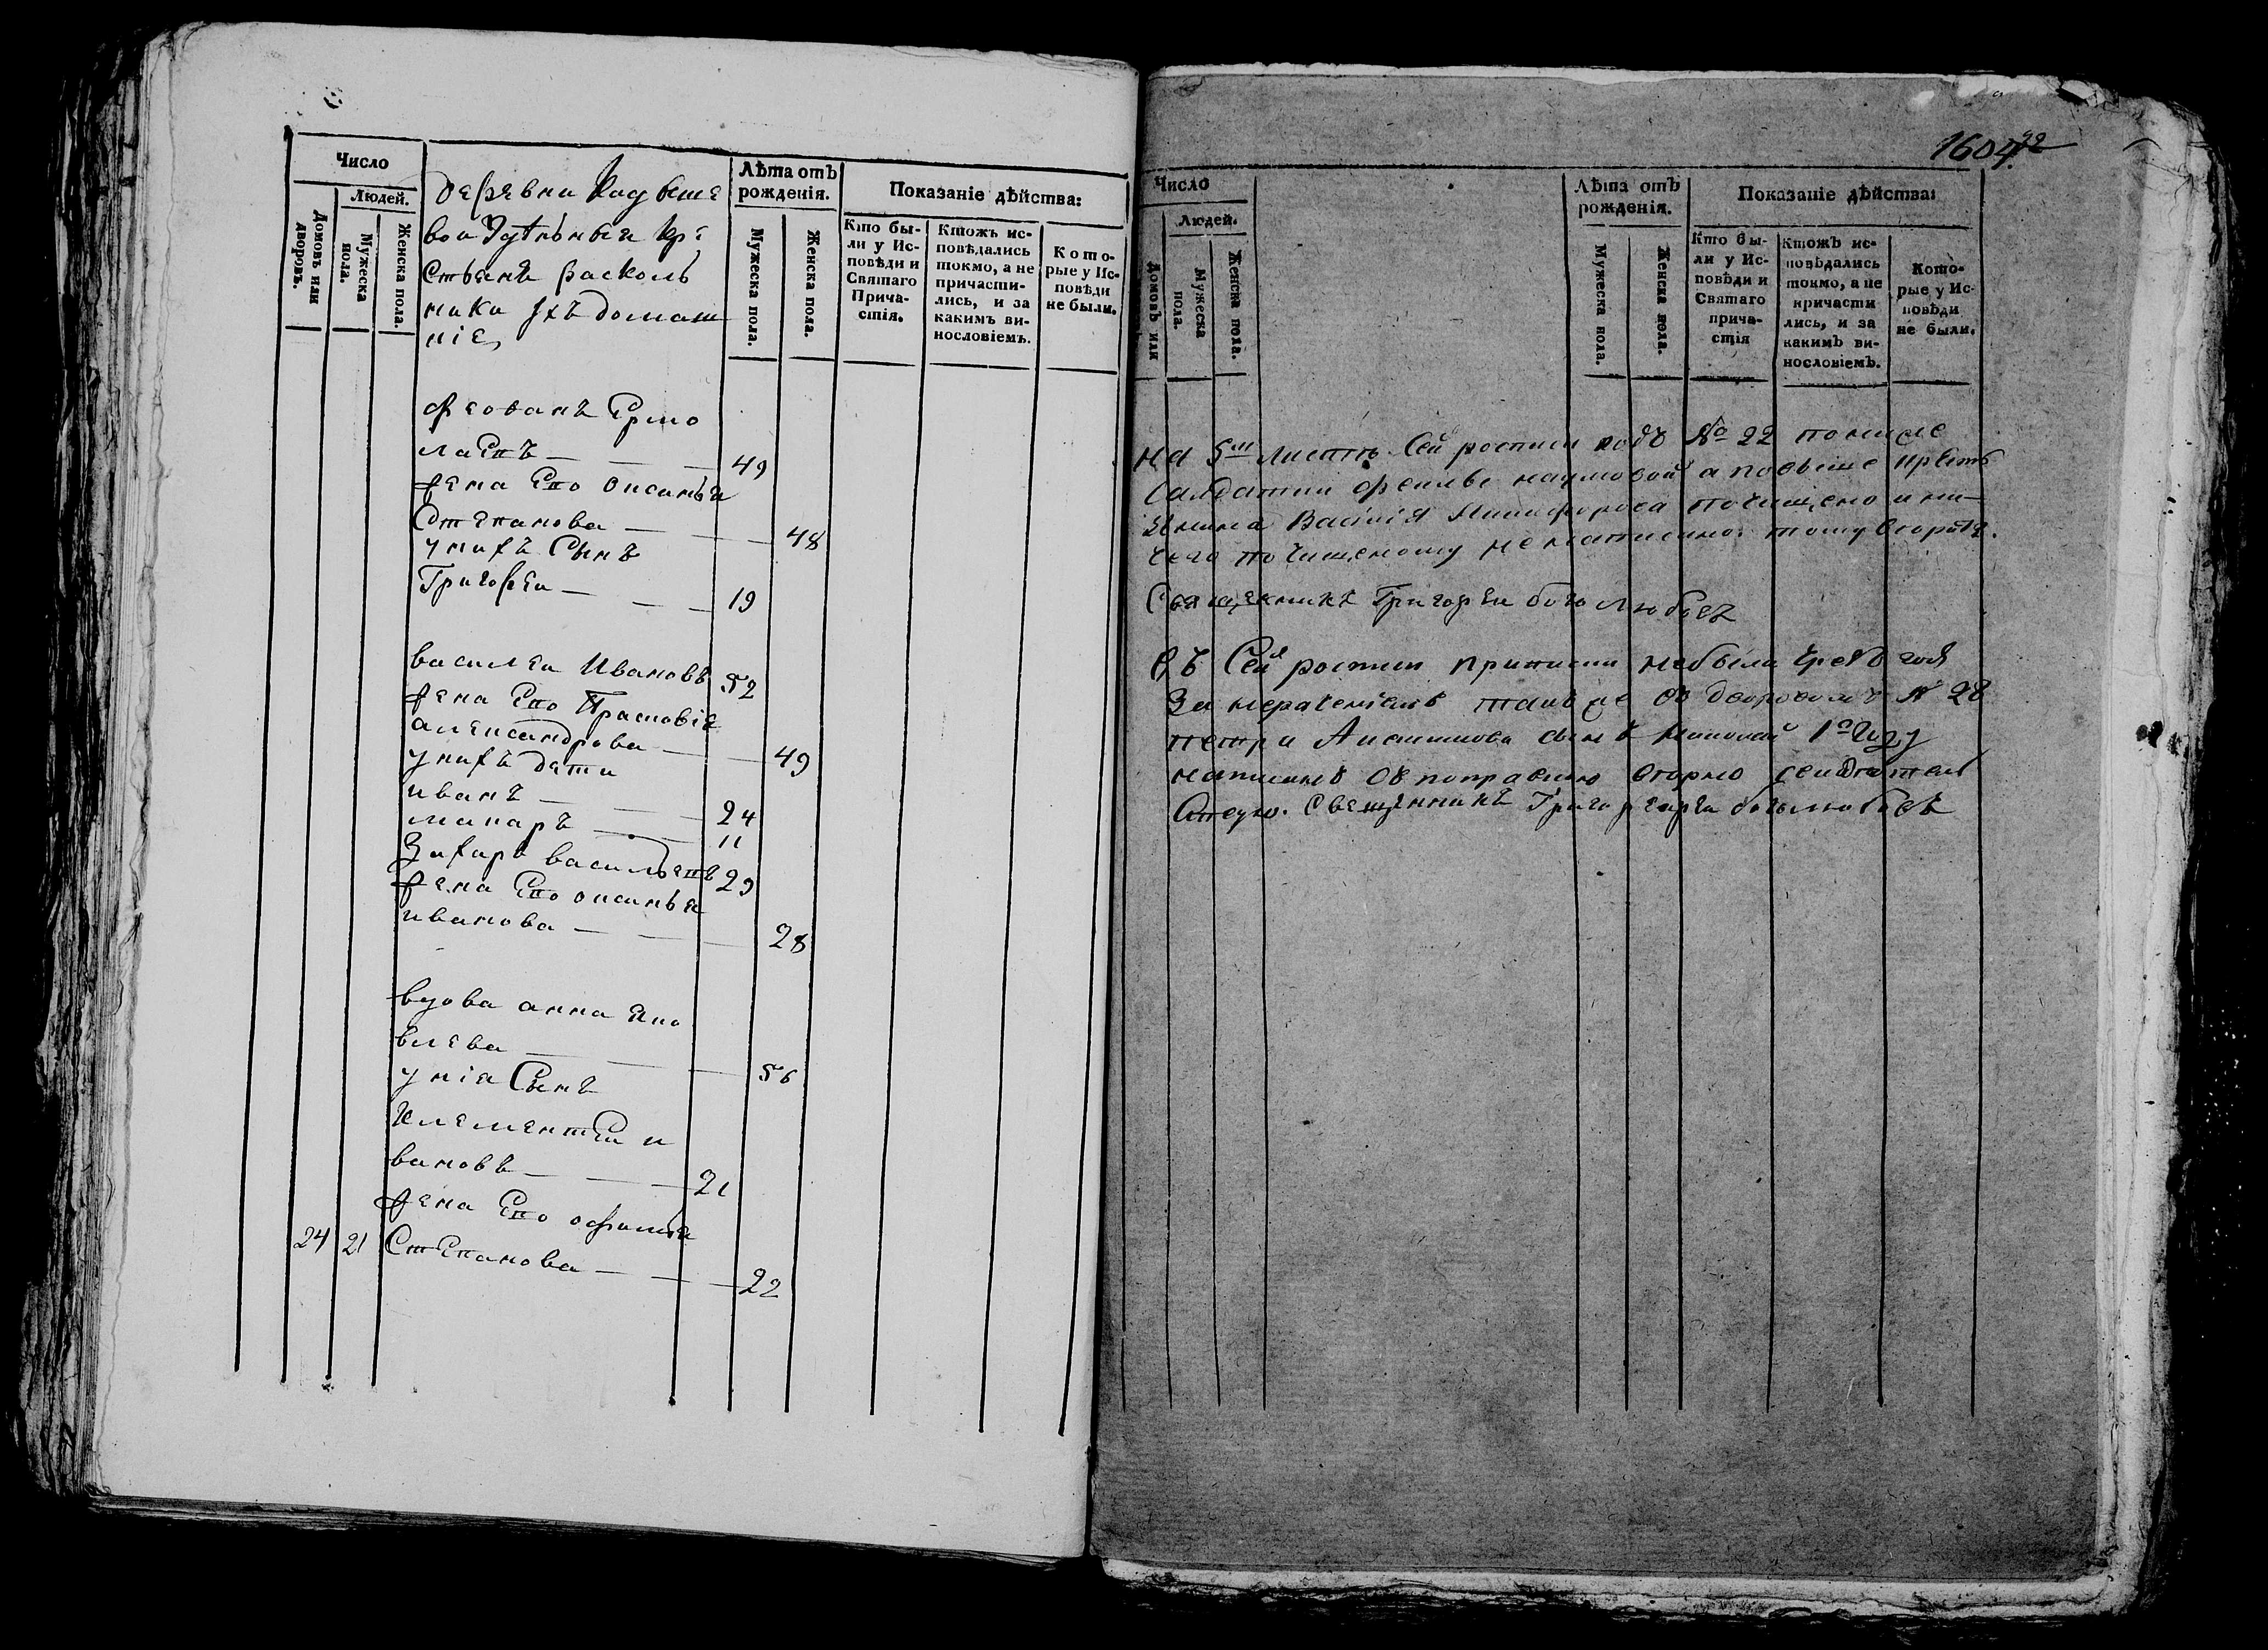 Число
Людей.
Домовъ или дворовъ.
Мужеска пола.
Женска пола.
деревни Кадыше
вои Удельныя кре
стьяне расколь
ники ихъ домаш
ніе,
Лѣта отъ
рожденія.
Мужеска пола.
Женска пола.
Показаніе дѣйства:
Кто бы-
ли у Ис-
повѣди и
Святаго
Прича-
стія.
Ктожъ ис-
повѣдались
токмо, а не
причасти-
лись, и за
какимъ ви-
нословіемъ.
Кото-
рые у Ис-
повѣди
не были.
Ермо
лаевъ — — — 49
жена Его оксинья
Степанова — — — 48
у нихъ Сынъ
Григореи — — — 19
василеи Ивановъ 52
жена Его Прасковіе
александрова — — 49
у нихъ дети
иванъ — — — 24
макаръ — — 11
Захаръ васильевъ 29
жена Его оксинья
иванова — — — 28
вдова анна Яко
влева — — — 56
у нія Сынъ
Клементеи и
вановъ — — — 21
жена Его офимья
24 21 Степанова — — — 22
1604
22
Число
Людей.
Домовъ или
Мужеска пола.
Женска пола.
Лѣта отъ
рожденія.
Мужеска пола.
Женска пола.
Показаніе дѣйства:
Кто бы-
ли у Ис-
повѣди и
Святаго
прича-
стія
Ктожъ ис-
повѣдались
токмо, а не
причасти
лись, и за
какимъ ви-
нословіемъ.
Кото-
рые у Ис-
повѣди
не были.
на 5м листѣ Сей росписи подъ № 22 по
Салдатки наумовой а повыше
Василія Никифорова почищено и ни-
чего по чищеному не написано: тому
Священникъ Григореи боголюбовъ
Въ Сей росписи приписки небыли
За также въ № 28
петра сынъ Николай 1го году
написанъ
Священникъ боголюбовъ